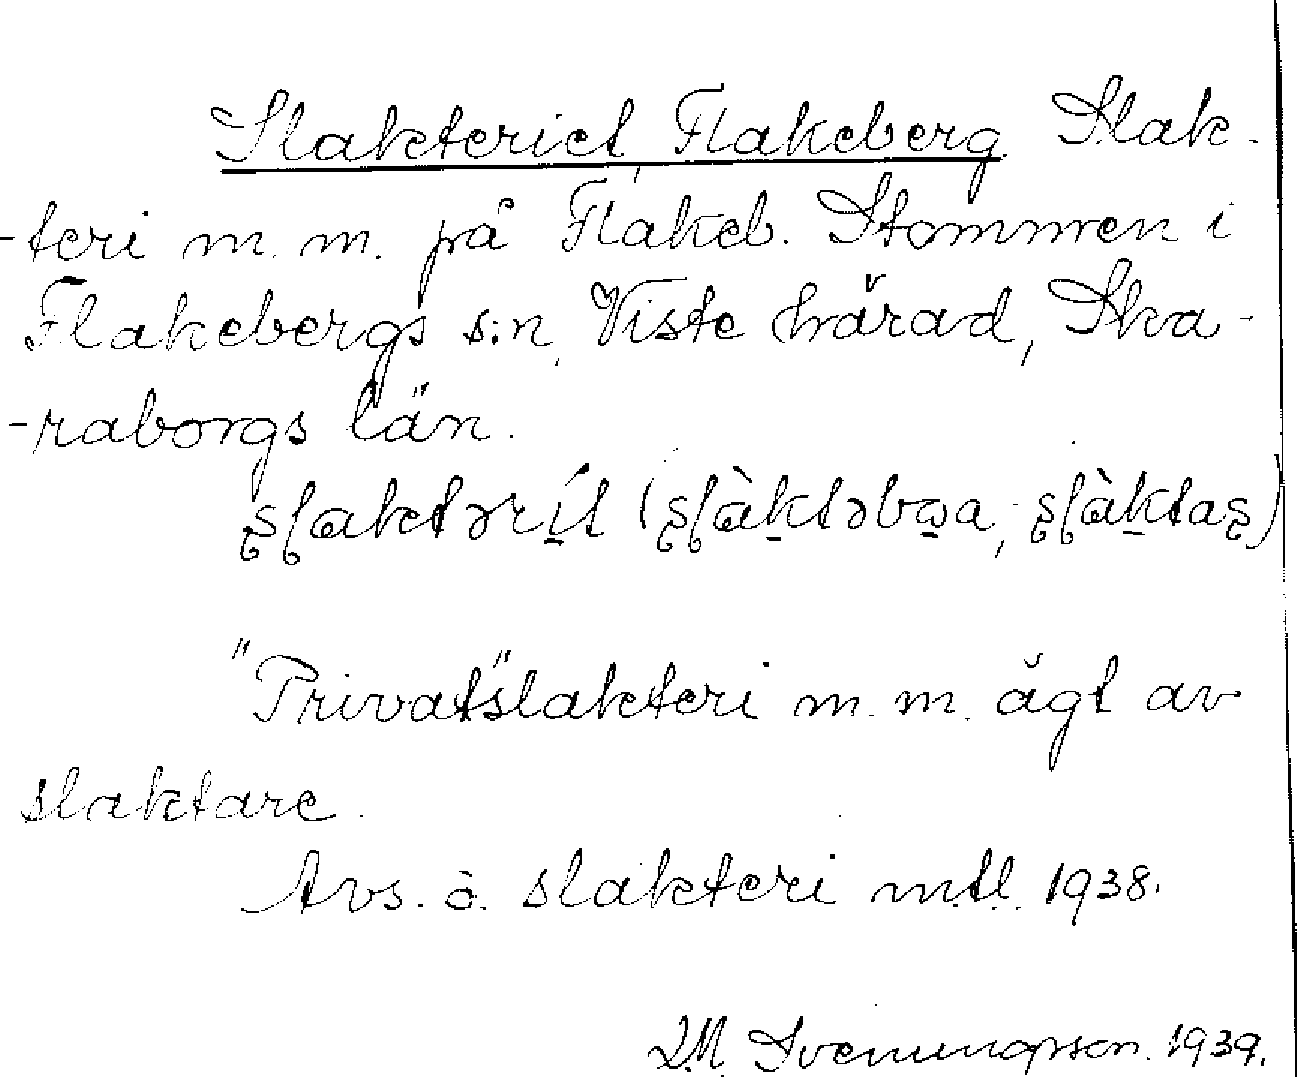 Slakteriet, Flakeberg Slak-
-teri m. m. på Flakeb. Stommen i
Flakebergs s:n, Viste härad, Ska-
-raborgs län.
"Privat"slakteri m. m. ägt av
slaktare.
Avs. å. slakteri m.fl. 1938.
Svenungsson. 1939.